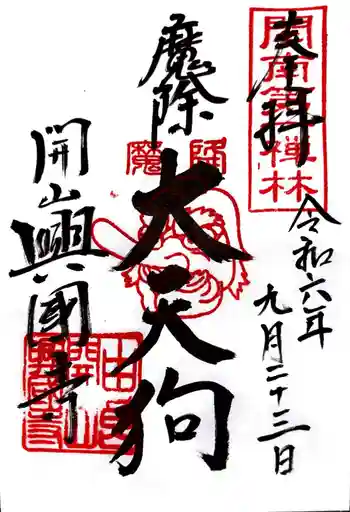 奉拝
関南第一禅林
令和六年
九月二十三日
魔除
降魔
大天狗
開山興國寺